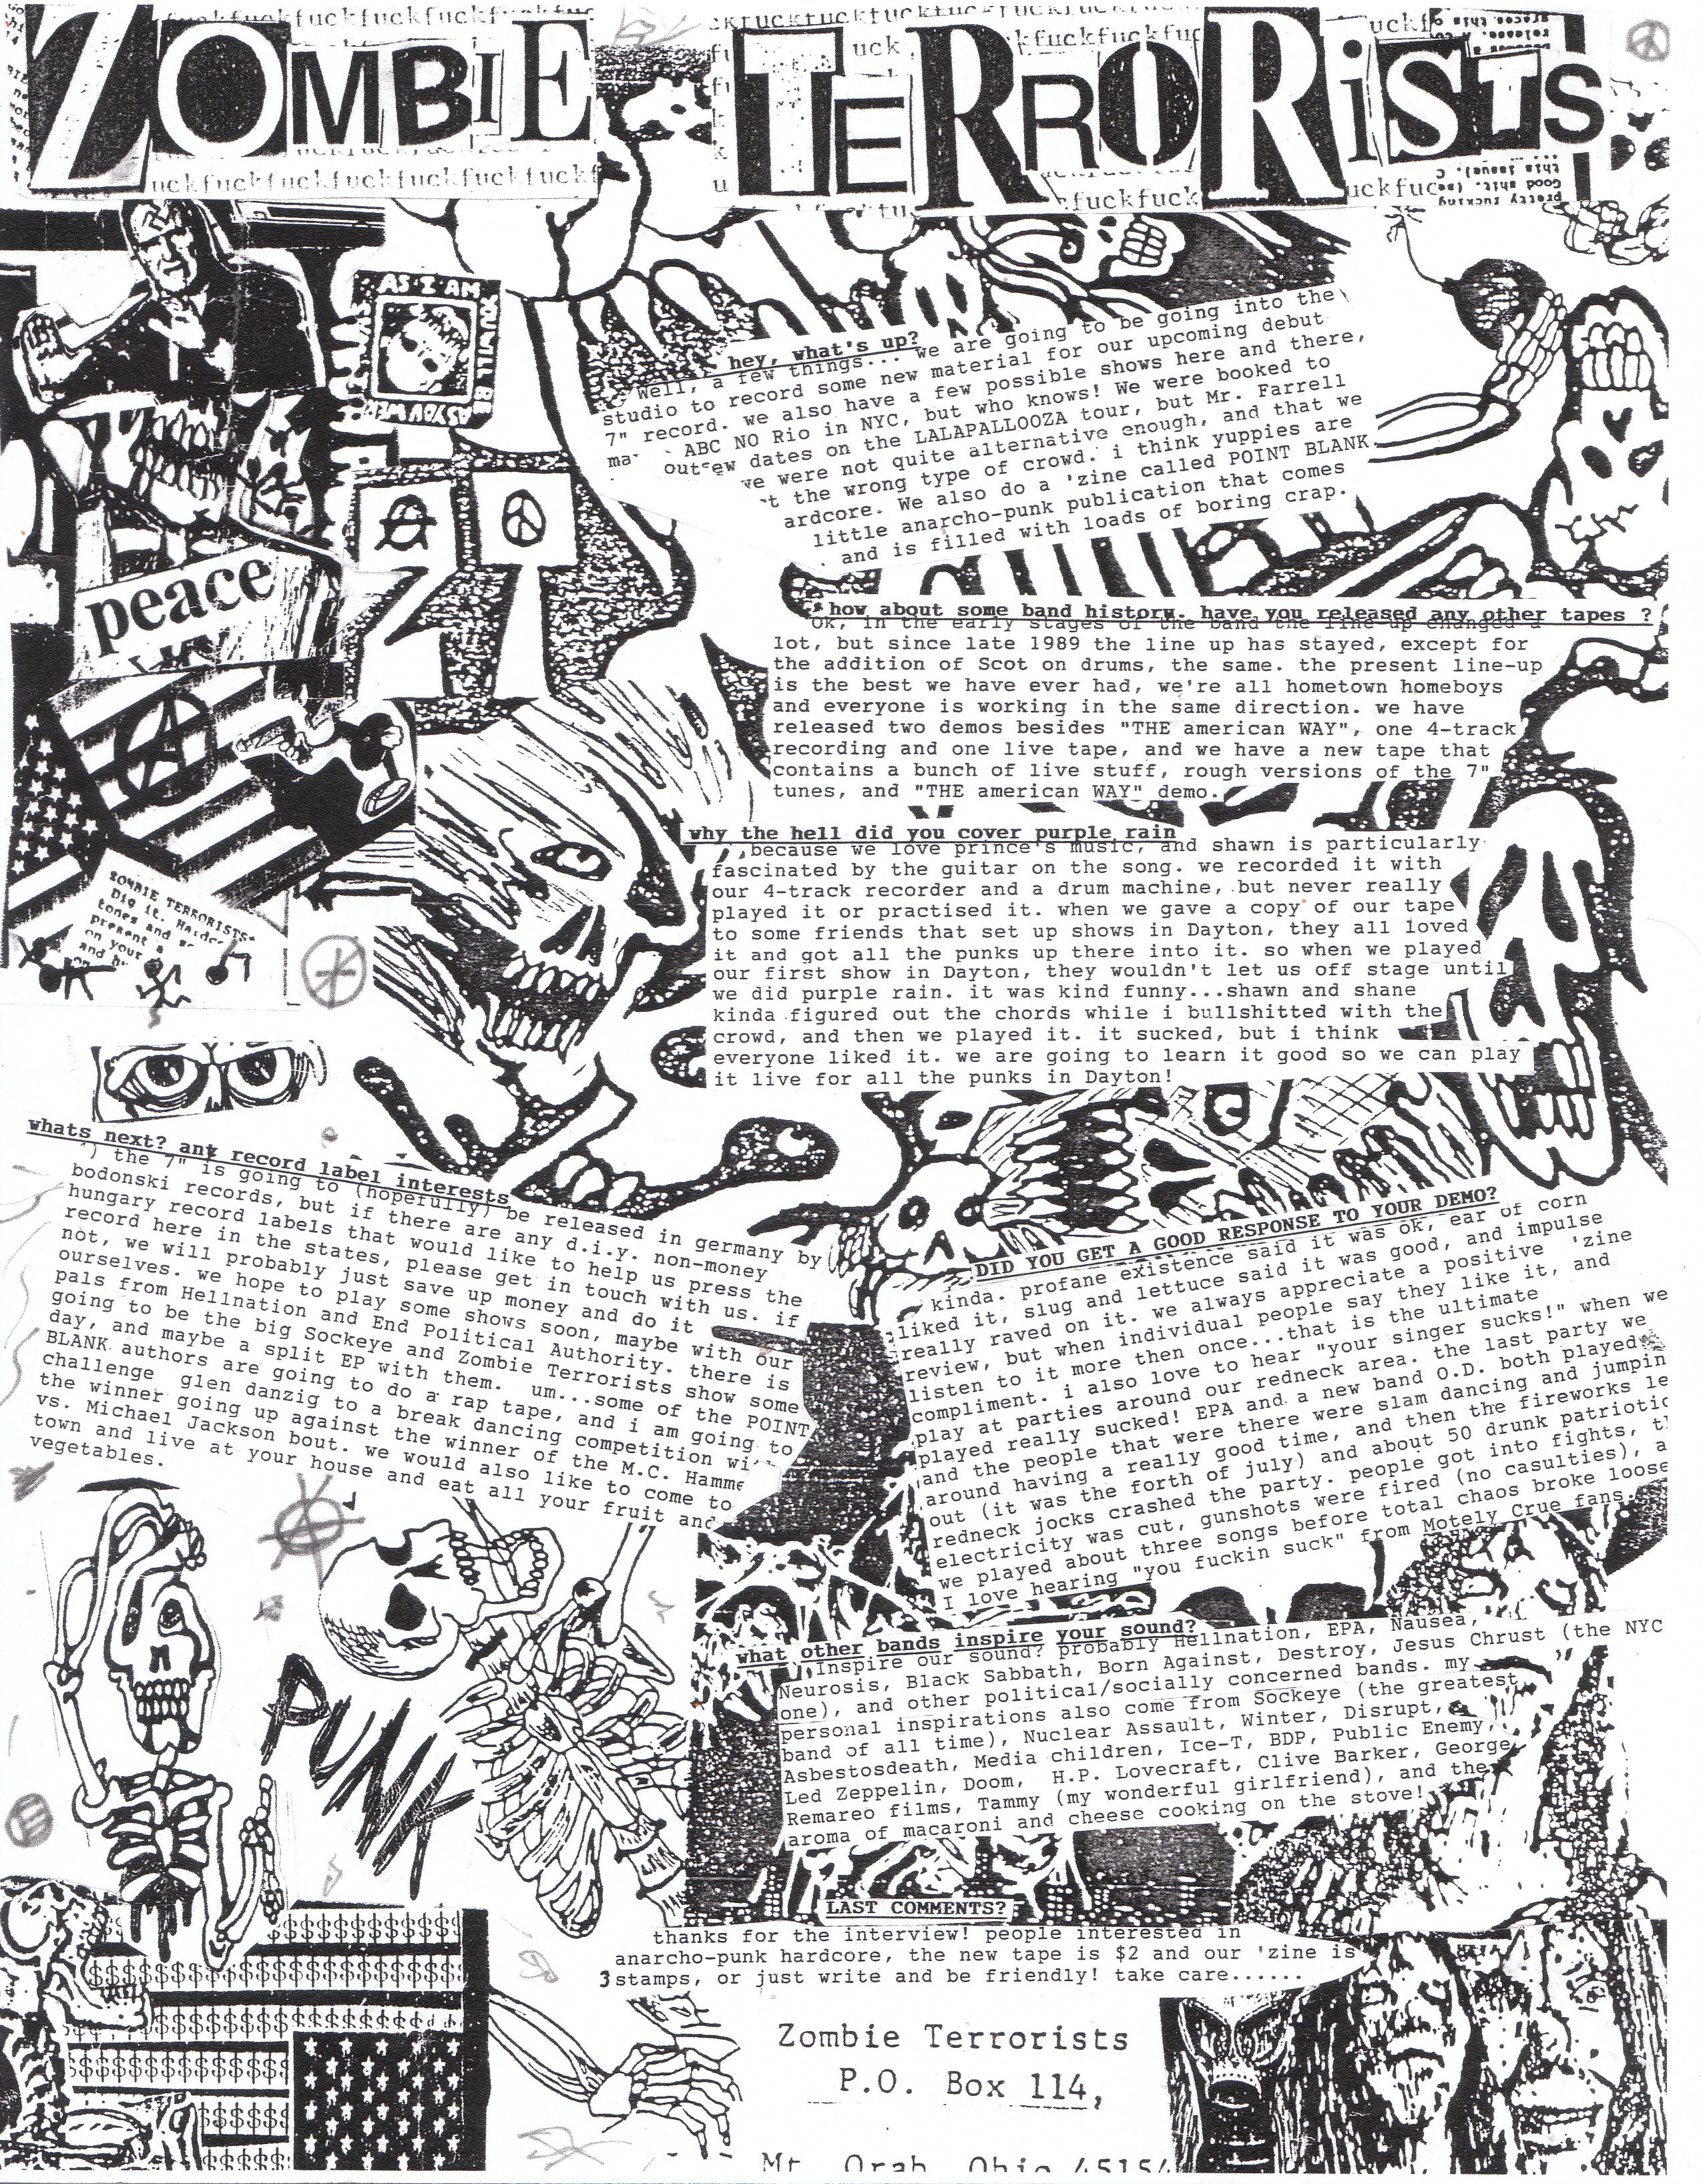 ZOMBIE TERRORISTS
AS I AM YOU WILL BE
peace
ZOMBIE TERRORISTS-
Dig it.
tones and
present a
on your
and
hey, what's up?
Well, a few things... we are going to be going into the
studio to record some new material for our upcoming debut
7" record. we also have a few possible shows here and there,
ABC NO Rio in NYC, but who knows! We were booked to
dates on the LALAPALLOOZA tour, but Mr. Farrell
we were not quite alternative enough, and that we
the wrong type of crowd. i think yuppies are
ardcore. We also do a 'zine called POINT BLANK
little anarcho-punk publication that comes
and is filled with loads of boring crap.
how about some band history. have you released any other tapes ?
Ok, in the early stages of the band the line up changed a
lot, but since late 1989 the line up has stayed, except for
the addition of Scot on drums, the same. the present line-up
is the best we have ever had, we're all hometown homeboys
and everyone is working in the same direction. we have
released two demos besides "THE american WAY", one 4-track
recording and one live tape, and we have a new tape that
contains a bunch of live stuff, rough versions of the 7"
tunes, and "THE american WAY" demo.
why the hell did you cover purple rain
because we love prince's music, and shawn is particularly
fascinated by the guitar on the song. we recorded it with
our 4-track recorder and a drum machine, but never really
played it or practised it. when we gave a copy of our tape
to some friends that set up shows in Dayton, they all loved
it and got all the punks up there into it. so when we played
our first show in Dayton, they wouldn't let us off stage until
we did purple rain. it was kind funny...shawn and shane
kinda figured out the chords while i bullshitted with the
crowd, and then we played it. it sucked, but i think
everyone liked it. we are going to learn it good so we can play
it live for all the punks in Dayton!
whats next? ant record label interests
the 7" is going to (hopefully) be released in germany by
bodonski records, but if there are any d.i.y. non-money
hungary record labels that would like to help us press the
record here in the states, please get in touch with us. if
not, we will probably just save up money and do it
ourselves. we hope to play some shows soon, maybe with our
pals from Hellnation and End Political Authority. there is
going to be the big Sockeye and Zombie Terrorists show some
day, and maybe a split EP with them. um...some of the POINT
BLANK authors are going to do a rap tape, and i am going to
challenge glen danzig to a break dancing competition with
the winner going up against the winner of the M.C. Hamme
vs. Michael Jackson bout. we would also like to come to
town and live at your house and eat all your fruit and
vegetables.
DID YOU GET A GOOD RESPONSE TO YOUR DEMO?
kinda. profane existence said it was ok, ear of corn
liked it, slug and lettuce said it was good, and impulse
really raved on it. we always appreciate a positive 'zine
review, but when individual people say they like it, and
listen to it more then once...that is the ultimate
compliment. i also love to hear "your singer sucks!" when we
play at parties around our redneck area. the last party we
played really sucked! EPA and a new band O.D. both played
and the people that were there were slam dancing and jumpin
around having a really good time, and then the fireworks le
out (it was the forth of july) and about 50 drunk patriotic
redneck jocks crashed the party. people got into fights, t
electricity was cut, gunshots were fired (no casulties), a
we played about three songs before total chaos broke loose
I love hearing "you fuckin suck" from Motely Crue fans.
what other bands inspire your sound?
Inspire our sound? probably Hellnation, EPA, Nausea,
Neurosis, Black Sabbath, Born Against, Destroy, Jesus Chrust (the NYC
one), and other political/socially concerned bands. my
personal inspirations also come from Sockeye (the greatest
band of all time), Nuclear Assault, Winter, Disrupt,
Asbestosdeath, Media children, Ice-T, BDP, Public Enemy,
Led Zeppelin, Doom, H.P. Lovecraft, Clive Barker, George
Remareo films, Tammy (my wonderful girlfriend), and the
aroma of macaroni and cheese cooking on the stove!
PUNK
LAST COMMENTS?
thanks for the interview! people interested in
anarcho-punk hardcore, the new tape is $2 and our 'zine is
3 stamps, or just write and be friendly! take care......
Zombie Terrorists
P.O. Box 114,
Mt. Orab, Ohio 45154